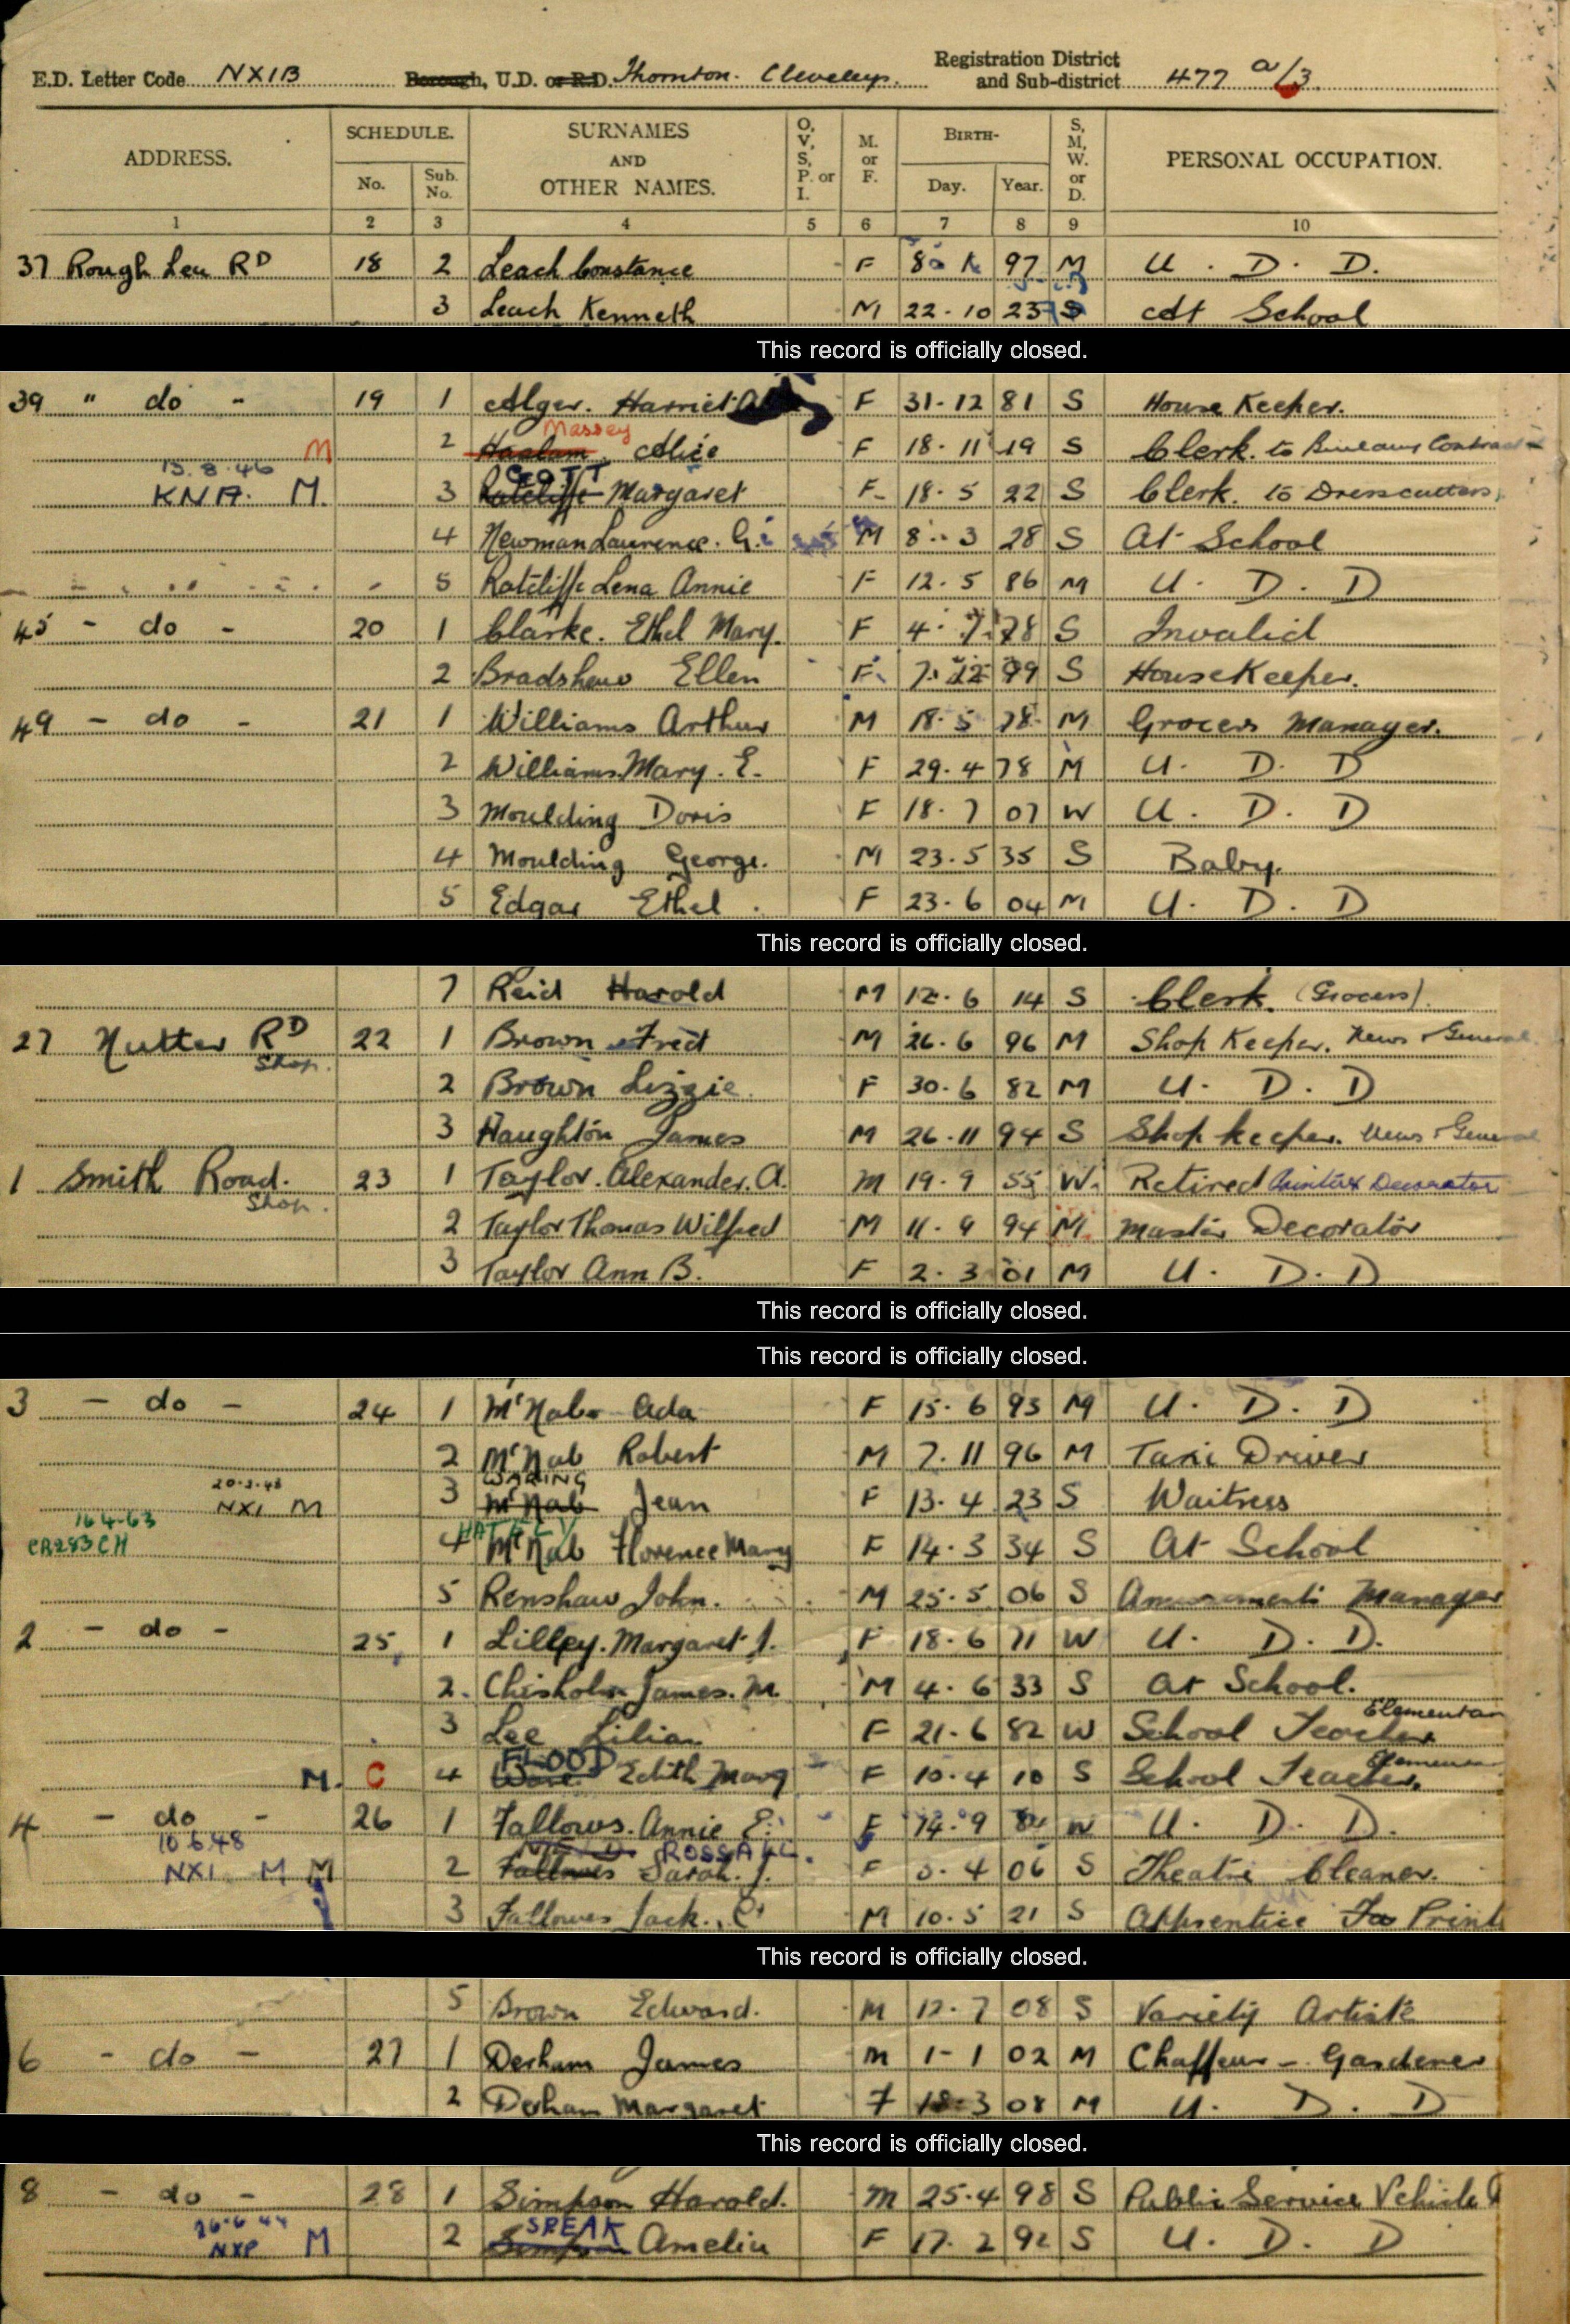 E.D. Letter Code NXIB Borough, U.D. or R.D. Thornton. Cleveleys. Registration District and Sub-district 477 a/3
ADDRESS. SCHEDULE. SURNAMES AND OTHER NAMES. O, V, S, P. or I. M. or F. BIRTH- S, M, W. or D. PERSONAL OCCUPATION.
No. Sub. No. Day. Year.
1 2 3 4 5 6 7 8 9 10
37 Rough Lea RD 18 2 Leach Constance F 97 M U. D. D.
3 Leach Kenneth M 22.10 23 S at School
This record is officially closed.
39 " do - 19 1 Alger. Harriet F 31.12 81 S House Keeper.
Massey
M 2 Haslam Alice F 18.11 19 S Clerk. to Contract
15.8.46 GOTT
KNA. M. 3 Ratcliffe Margaret F 18.5 22 S Clerk. to Dresscutters
4 Newman Laurence. G. M 8.3 28 S At School
5 Ratcliffe Lena Annie F 12.5 86 M U. D. D
45 - do - 20 1 Clarke. Ethel Mary. F 4.7.78 S Invalid
2 Bradshaw Ellen F. 7.12 99 S HouseKeeper.
49 - do - 21 1 Williams Arthur M 18.5 78 M Grocers Manager.
2 Williams. Mary. E. F 29.4 78 M U. D. D
3 Moulding Doris F 18.7 07 W U. D. D
4 Moulding George. M 23.5 35 S Baby.
5 Edgar Ethel F 23.6 04 M U. D. D
This record is officially closed.
7 Reid Harold M 12.6 14 S Clerk. (Grocers).
27 Nutter RD 22 1 Brown Fred M 26.6 96 M Shop Keeper. News & General
Shop.
2 Brown Lizzie. F 30.6 82 M U. D. D
3 Haughton James M 26.11 94 S Shop keeper. News & General
1 Smith Road. 23 1 Taylor. Alexander. A. M 19.9 55 W. Retired Painter & Decorator
Shop.
2 Taylor Thomas Wilfred M 11.9 94 M. Master Decorator
3 Taylor Ann B. F 2.3 01 M U. D. D
This record is officially closed.
This record is officially closed.
3 - do - 24 1 McNab Ada F 15.6 93 M U. D. D
2 McNab Robert M 7.11 96 M Taxi Driver
20.3.48
NXI M 3 McNab Jean F 13.4 23 S Waitress
16.4.63
CR283CH 4 McNab Florence Mary F 14.3 34 S At School
5 Renshaw John. M 25.5 06 S Amusements Manager
2 - do - 25 1 Lilley. Margaret J. F 18.6 71 W U. D. D.
2. Chisholm James. M. M 4.6 33 S At School.
3 Lee Lilian F 21.6 82 W School Teacher Elementary
FLOOD
M. C 4 Edith Mary F 10.4 10 S School Teacher, Elementary
4 - do - 26 1 Fallows. Annie E. F 14.9 W U. D. D.
10.6.48 ROSSALL.
NXI M M 2 Fallows Sarah. J. F 04 06 S Theatre Cleaner.
3 Fallows Jack. M 10.5 21 S Apprentice Print
This record is officially closed.
5 Brown Edward. M 12.7 08 S Variety Artiste
6 - do - 27 1 Derham James M 1-1 02 M Chaffeur - Gardener
2 Derham Margaret F 18.3 08 M U. D. D
This record is officially closed.
8 - do - 28 1 Simpson Harold. M 25.4 98 S Public Service Vehicle
26.6.44 SPEAK
NXP M 2 Simpson Amelia F 17.2 92 S U. D. D